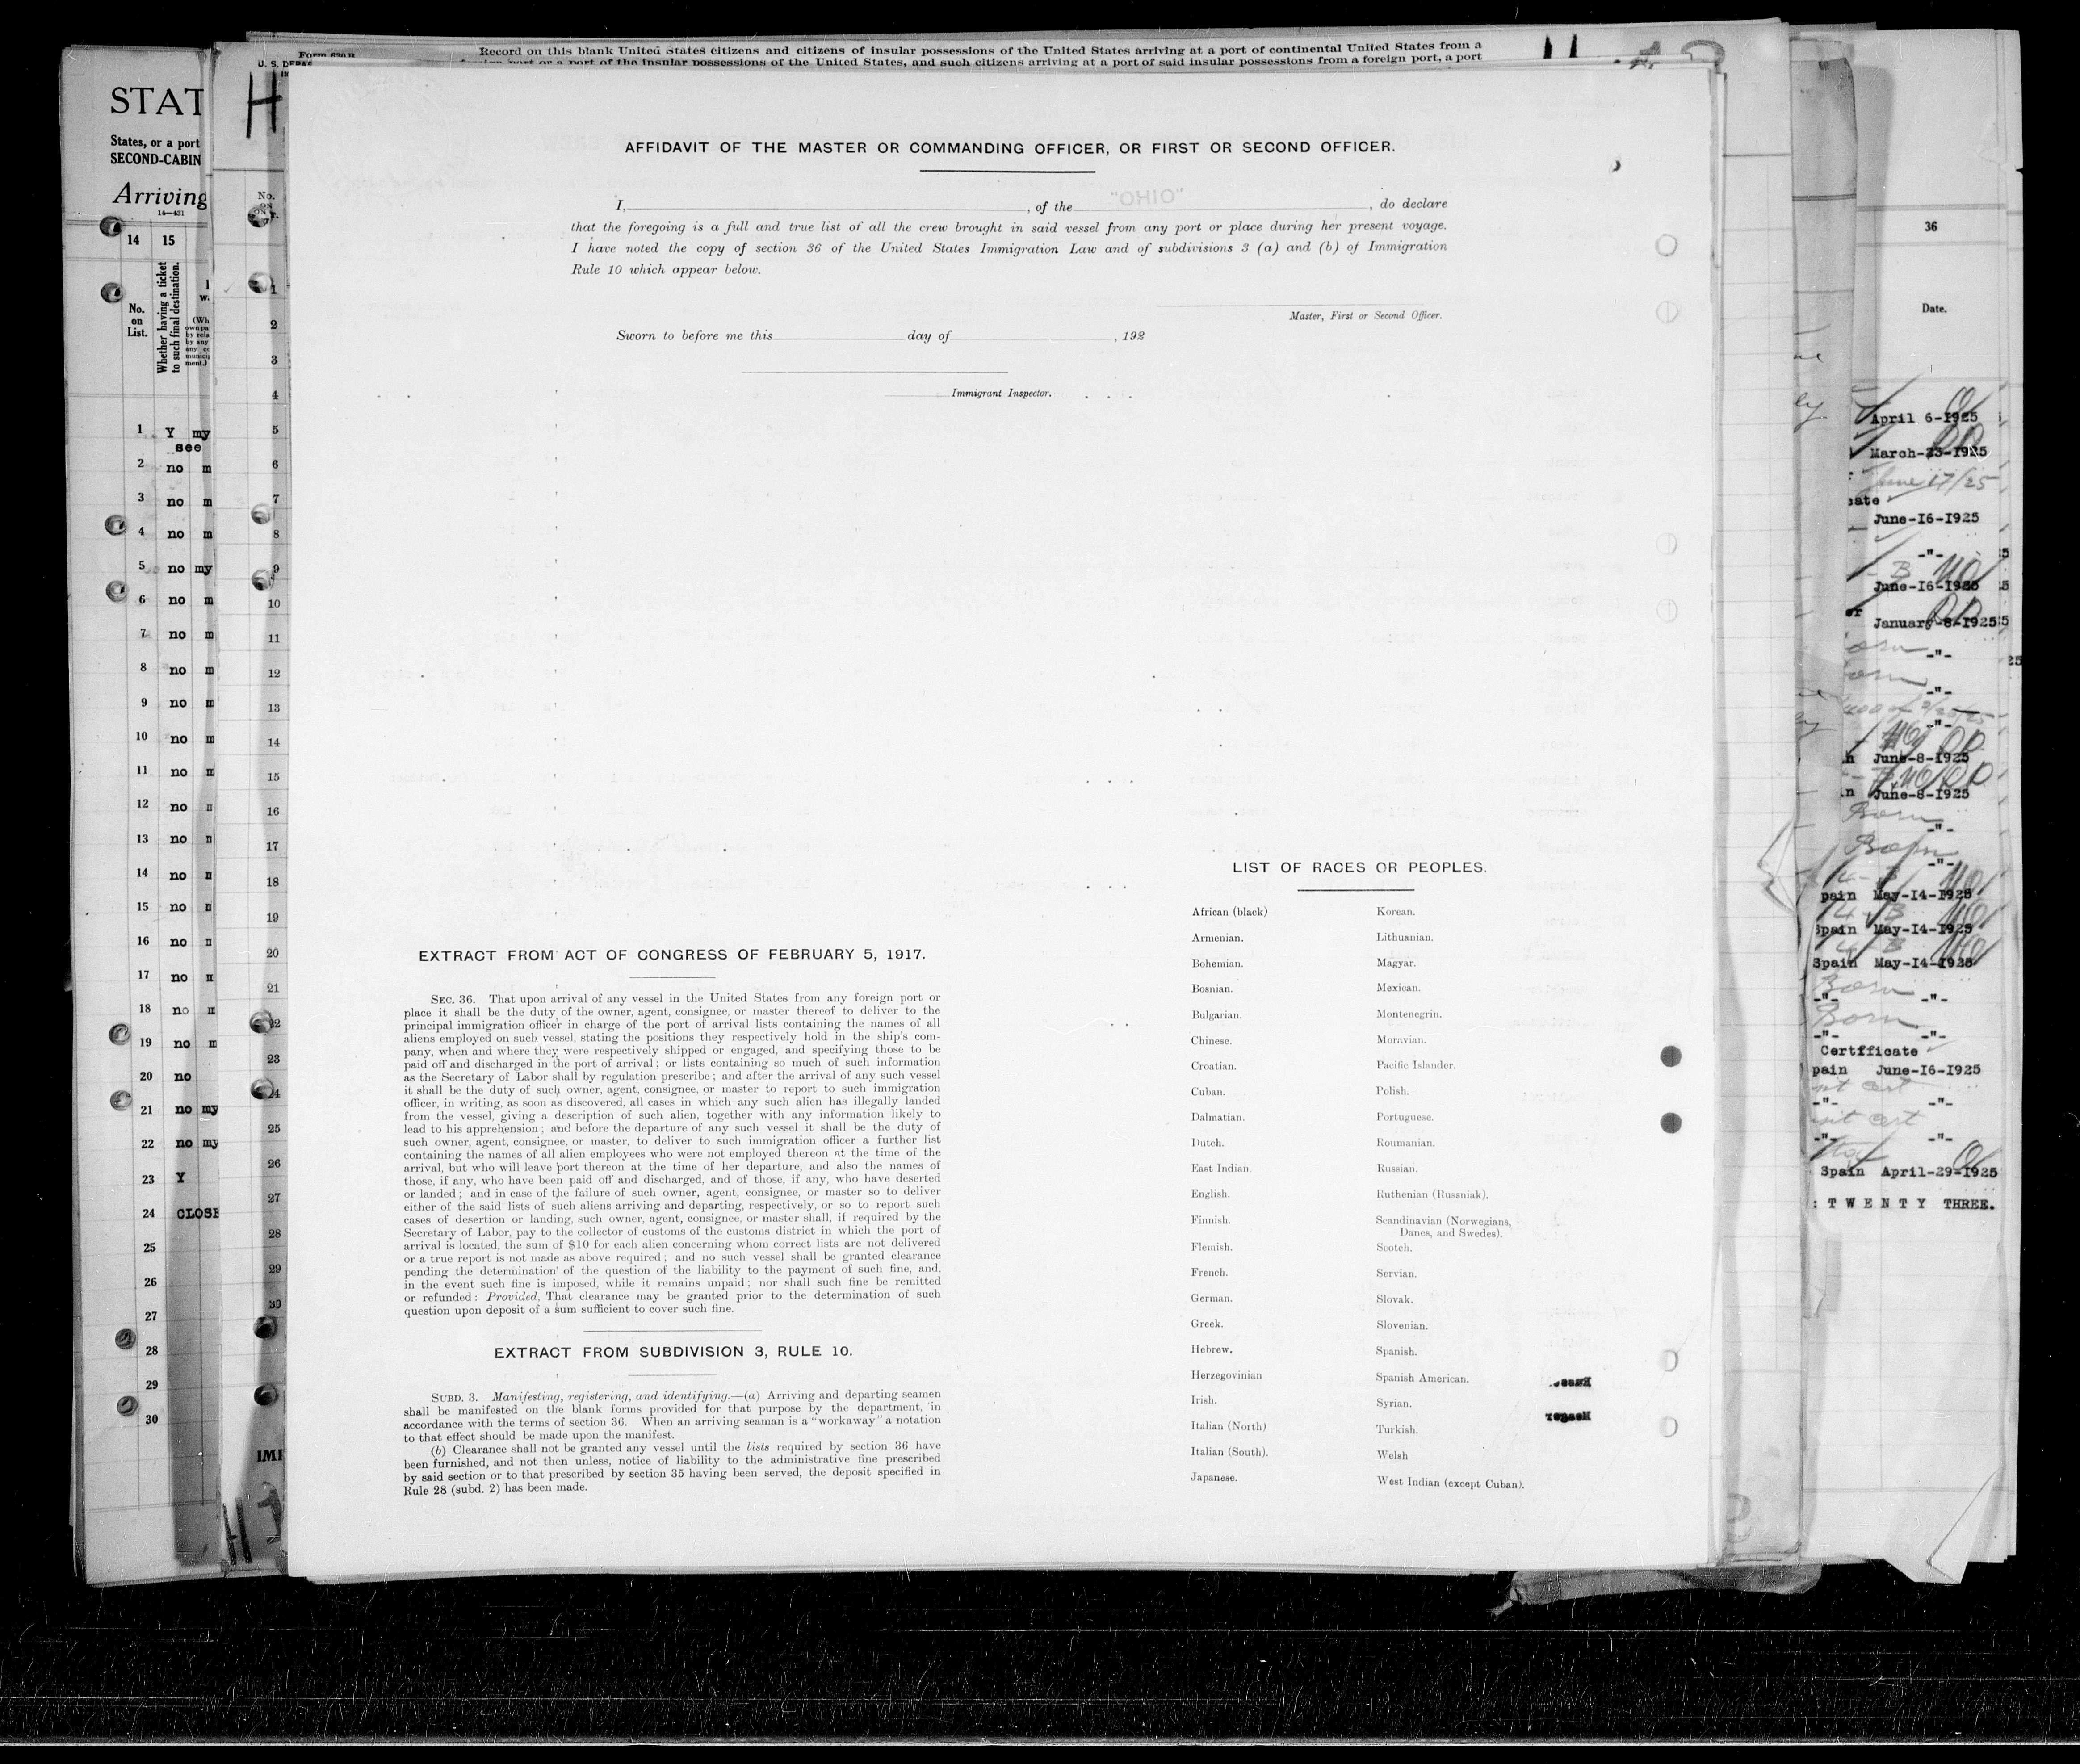 Record on this blank United States citizens and citizens of insular possessions of the United States arriving at a port of continental United States from a
foreign port or a port of the insular possessions of the United States, and such citizens arriving at a port of said insular possessions from a foreign port, a port
STAT
States, or a port
SECOND-CABIN
Arriving
14—431
14 15
No. on List.
Whether having a ticket to such final destination.
1 Y my
see
2 no m
3 no m
4 no m
5 no my
6 no m
7 no m
8 no m
9 no m
10 no m
11 no
12 no
13 no
14 no
15 no
16 no
17 no
18 no
19 no m
20 no
21 no my
22 no my
23 Y
24 CLOSE
25
26
27
28
29
30
H
No.
1
2
3
4
5
6
7
8
9
10
11
12
13
14
15
16
17
18
19
20
21
22
23
24
25
26
27
28
29
30
IMI
AFFIDAVIT OF THE MASTER OR COMMANDING OFFICER, OR FIRST OR SECOND OFFICER.
"OHIO"
I, , of the , do declare
that the foregoing is a full and true list of all the crew brought in said vessel from any port or place during her present voyage.
I have noted the copy of section 36 of the United States Immigration Law and of subdivisions 3 (a) and (b) of Immigration
Rule 10 which appear below.
Master, First or Second Officer.
Sworn to before me this day of , 192
Immigrant Inspector.
EXTRACT FROM ACT OF CONGRESS OF FEBRUARY 5, 1917.
SEC. 36. That upon arrival of any vessel in the United States from any foreign port or
place it shall be the duty of the owner, agent, consignee, or master thereof to deliver to the
principal immigration officer in charge of the port of arrival lists containing the names of all
aliens employed on such vessel, stating the positions they respectively hold in the ship's com-
pany, when and where they were respectively shipped or engaged, and specifying those to be
paid off and discharged in the port of arrival; or lists containing so much of such information
as the Secretary of Labor shall by regulation prescribe; and after the arrival of any such vessel
it shall be the duty of such owner, agent, consignee, or master to report to such immigration
officer, in writing, as soon as discovered, all cases in which any such alien has illegally landed
from the vessel, giving a description of such alien, together with any information likely to
lead to his apprehension; and before the departure of any such vessel it shall be the duty of
such owner, agent, consignee, or master, to deliver to such immigration officer a further list
containing the names of all alien employees who were not employed thereon at the time of the
arrival, but who will leave port thereon at the time of her departure, and also the names of
those, if any, who have been paid off and discharged, and of those, if any, who have deserted
or landed; and in case of the failure of such owner, agent, consignee, or master so to deliver
either of the said lists of such aliens arriving and departing, respectively, or so to report such
cases of desertion or landing, such owner, agent, consignee, or master shall, if required by the
Secretary of Labor, pay to the collector of customs of the customs district in which the port of
arrival is located, the sum of $10 for each alien concerning whom correct lists are not delivered
or a true report is not made as above required; and no such vessel shall be granted clearance
pending the determination of the question of the liability to the payment of such fine, and,
in the event such fine is imposed, while it remains unpaid; nor shall such fine be remitted
or refunded: Provided, That clearance may be granted prior to the determination of such
question upon deposit of a sum sufficient to cover such fine.
EXTRACT FROM SUBDIVISION 3, RULE 10.
SUBD. 3. Manifesting, registering, and identifying.—(a) Arriving and departing seamen
shall be manifested on the blank forms provided for that purpose by the department, in
accordance with the terms of section 36. When an arriving seaman is a "workaway" a notation
to that effect should be made upon the manifest.
(b) Clearance shall not be granted any vessel until the lists required by section 36 have
been furnished, and not then unless, notice of liability to the administrative fine prescribed
by said section or to that prescribed by section 35 having been served, the deposit specified in
Rule 28 (subd. 2) has been made.
LIST OF RACES OR PEOPLES.
African (black)
Armenian.
Bohemian.
Bosnian.
Bulgarian.
Chinese.
Croatian.
Cuban.
Dalmatian.
Dutch.
East Indian.
English.
Finnish.
Flemish.
French.
German.
Greek.
Hebrew.
Herzegovinian
Irish.
Italian (North)
Italian (South).
Japanese.
Korean.
Lithuanian.
Magyar.
Mexican.
Montenegrin.
Moravian.
Pacific Islander.
Polish.
Portuguese.
Roumanian.
Russian.
Ruthenian (Russniak).
Scandinavian (Norwegians,
Danes, and Swedes).
Scotch.
Servian.
Slovak.
Slovenian.
Spanish.
Spanish American.
Syrian.
Turkish.
Welsh
West Indian (except Cuban).
36
Date.
April 6-1925
March-23-1925
June 17/25
June-I6-1925
-"-
June-I6-1925
January-8-1925
-"-
-"-
-"-
June-8-1925
June-8-1925
Born
-"-
Born
-"-
pain May-I4-1925
Spain May-I4-1925
Spain May-I4-1925
Born
-"- -"-
Born
-"- -"-
Certificate
pain June-I6-1925
-"- -"-
-"- -"-
Spain April-29-1925
: T W E N T Y THREE.